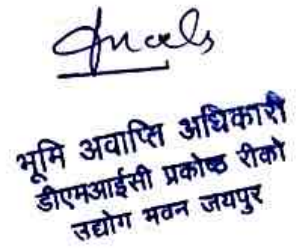 भूमि अवाप्ति अधिकारी
डीएमआईसी प्रकोष्ठ रीको
उद्योग भवन जयपुर